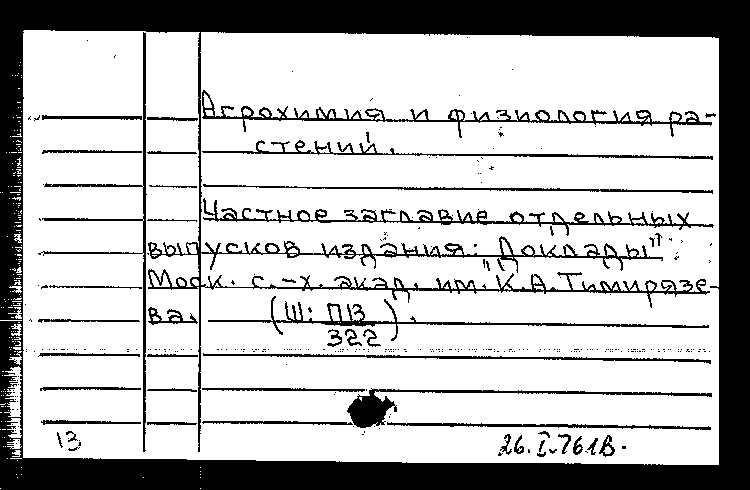 Агрохимия и физиология ра-
стений.
Частное заглавие отдельных
выпусков издания: "Доклады"
Моск. с.-х. акад. им. К.А. Тимирязе-
ва. (Ш: П13/322).
13
26.I.761В.